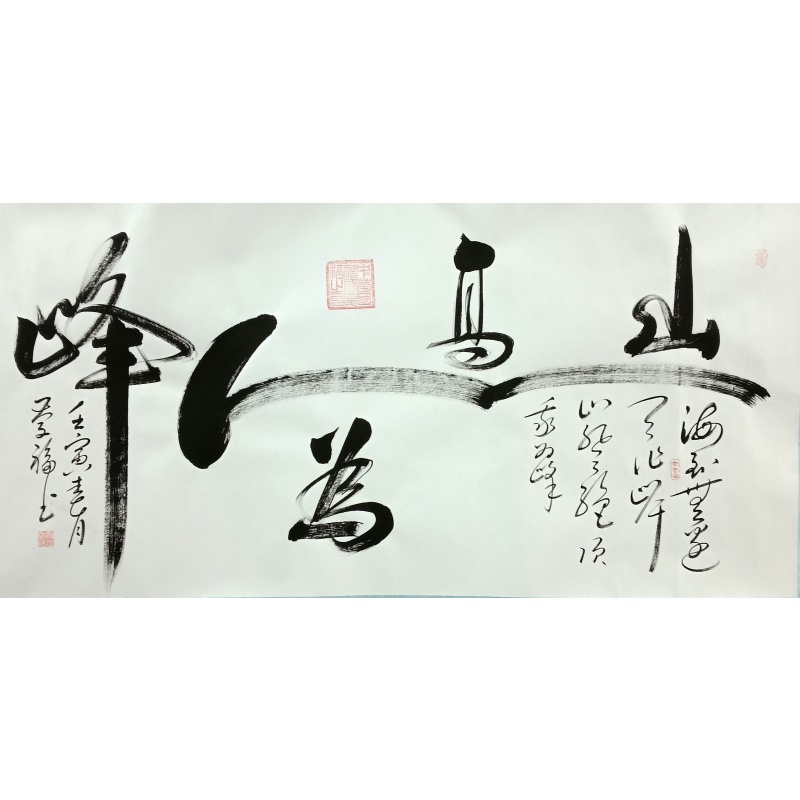 山高人為峰
海到無邊
天作岸
山登絕頂
我為峰
壬寅春月
福书